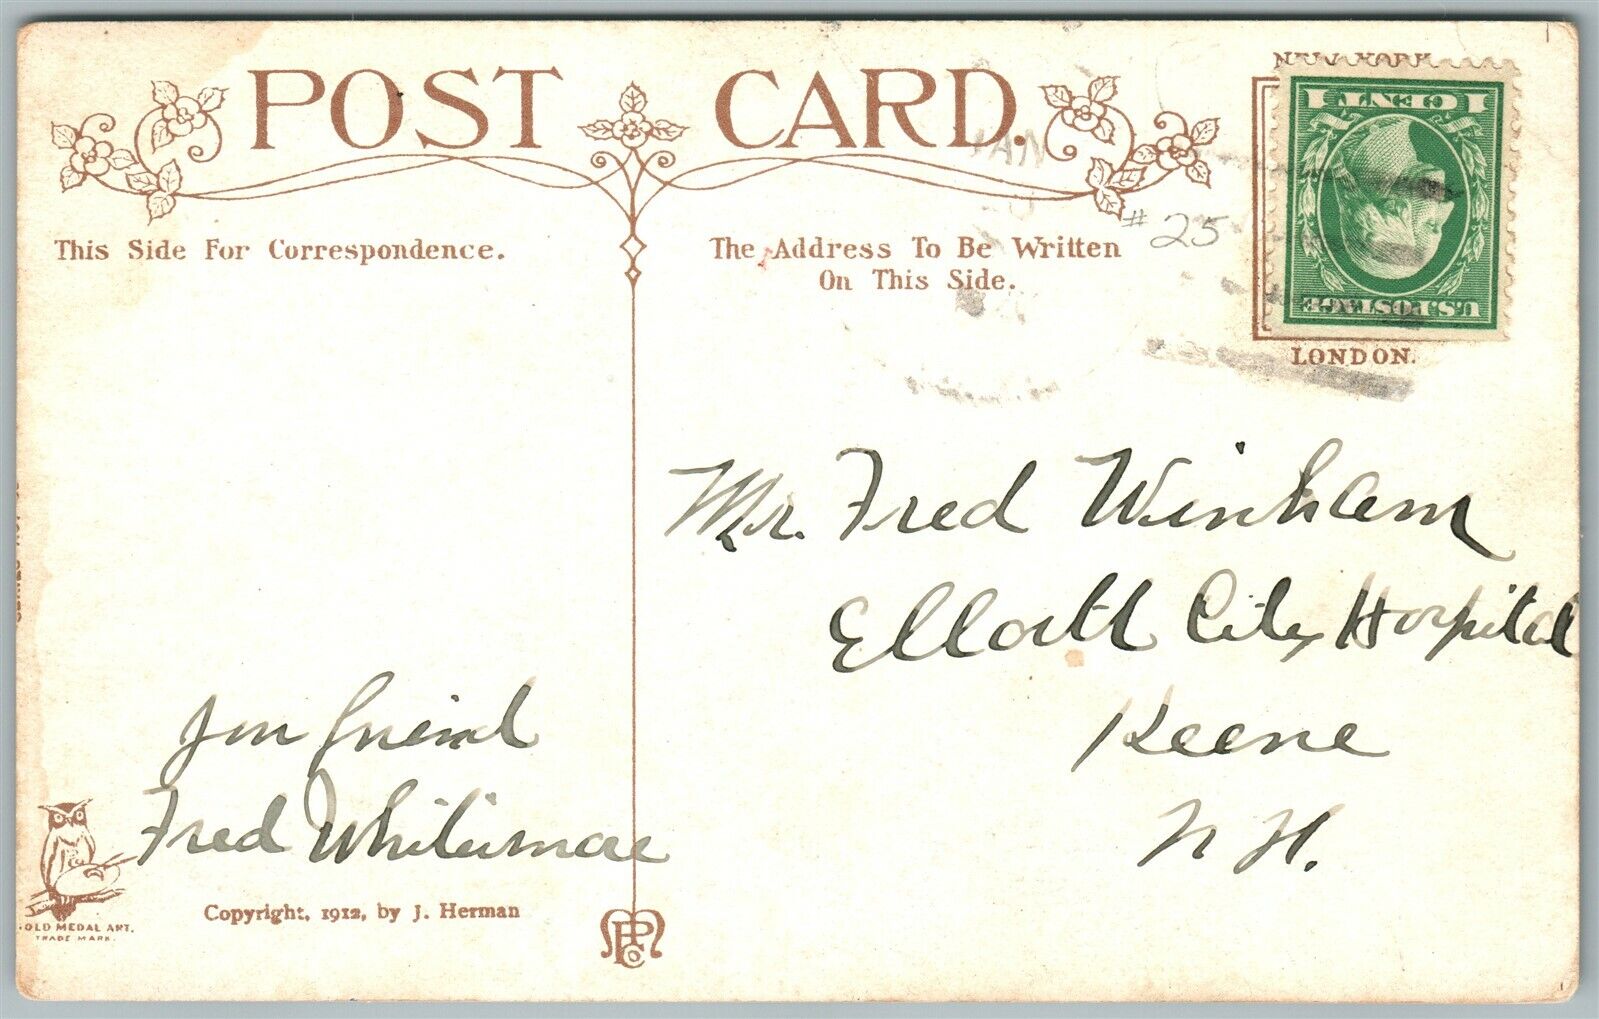 POST CARD.
NEW YORK
1 CENT 1
U.S. POSTAGE
LONDON.
JAN
#25
This Side For Correspondence.
The Address To Be Written
On This Side.
Mr. Fred Winham
Ellott City Hospital
Keene
N H.
friend
Fred
Copyright, 1912, by J. Herman
OLD MEDAL ART.
TRADE MARK.